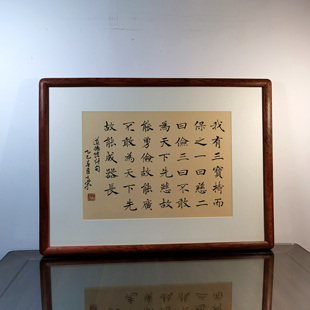 我有三寶持而
保之一曰慈二
曰儉三曰不敢
為天下先慈故
能勇儉故能廣
不敢為天下先
故能成器長
道德經句